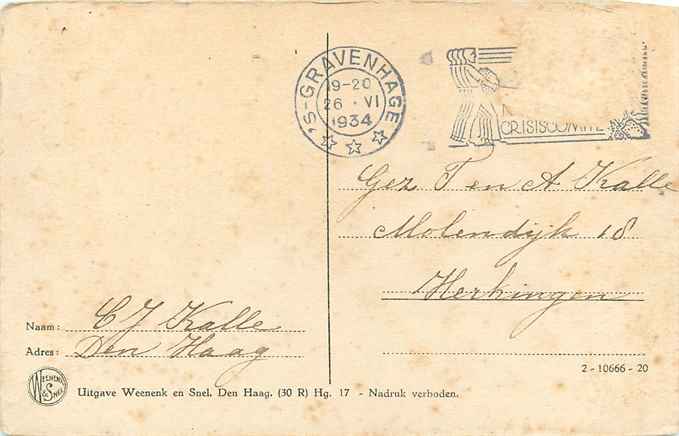 'S-GRAVENHAGE
19-20
26 · VI
1934
CRISISCOMITE
Gez T en A Kalle
Molendijk 18
Herkingen
Naam: C J Kalle
Adres: Den Haag
2 - 10666 - 20
WEENENK & SNEL
Uitgave Weenenk en Snel. Den Haag. (30 R) Hg. 17 - Nadruk verboden.